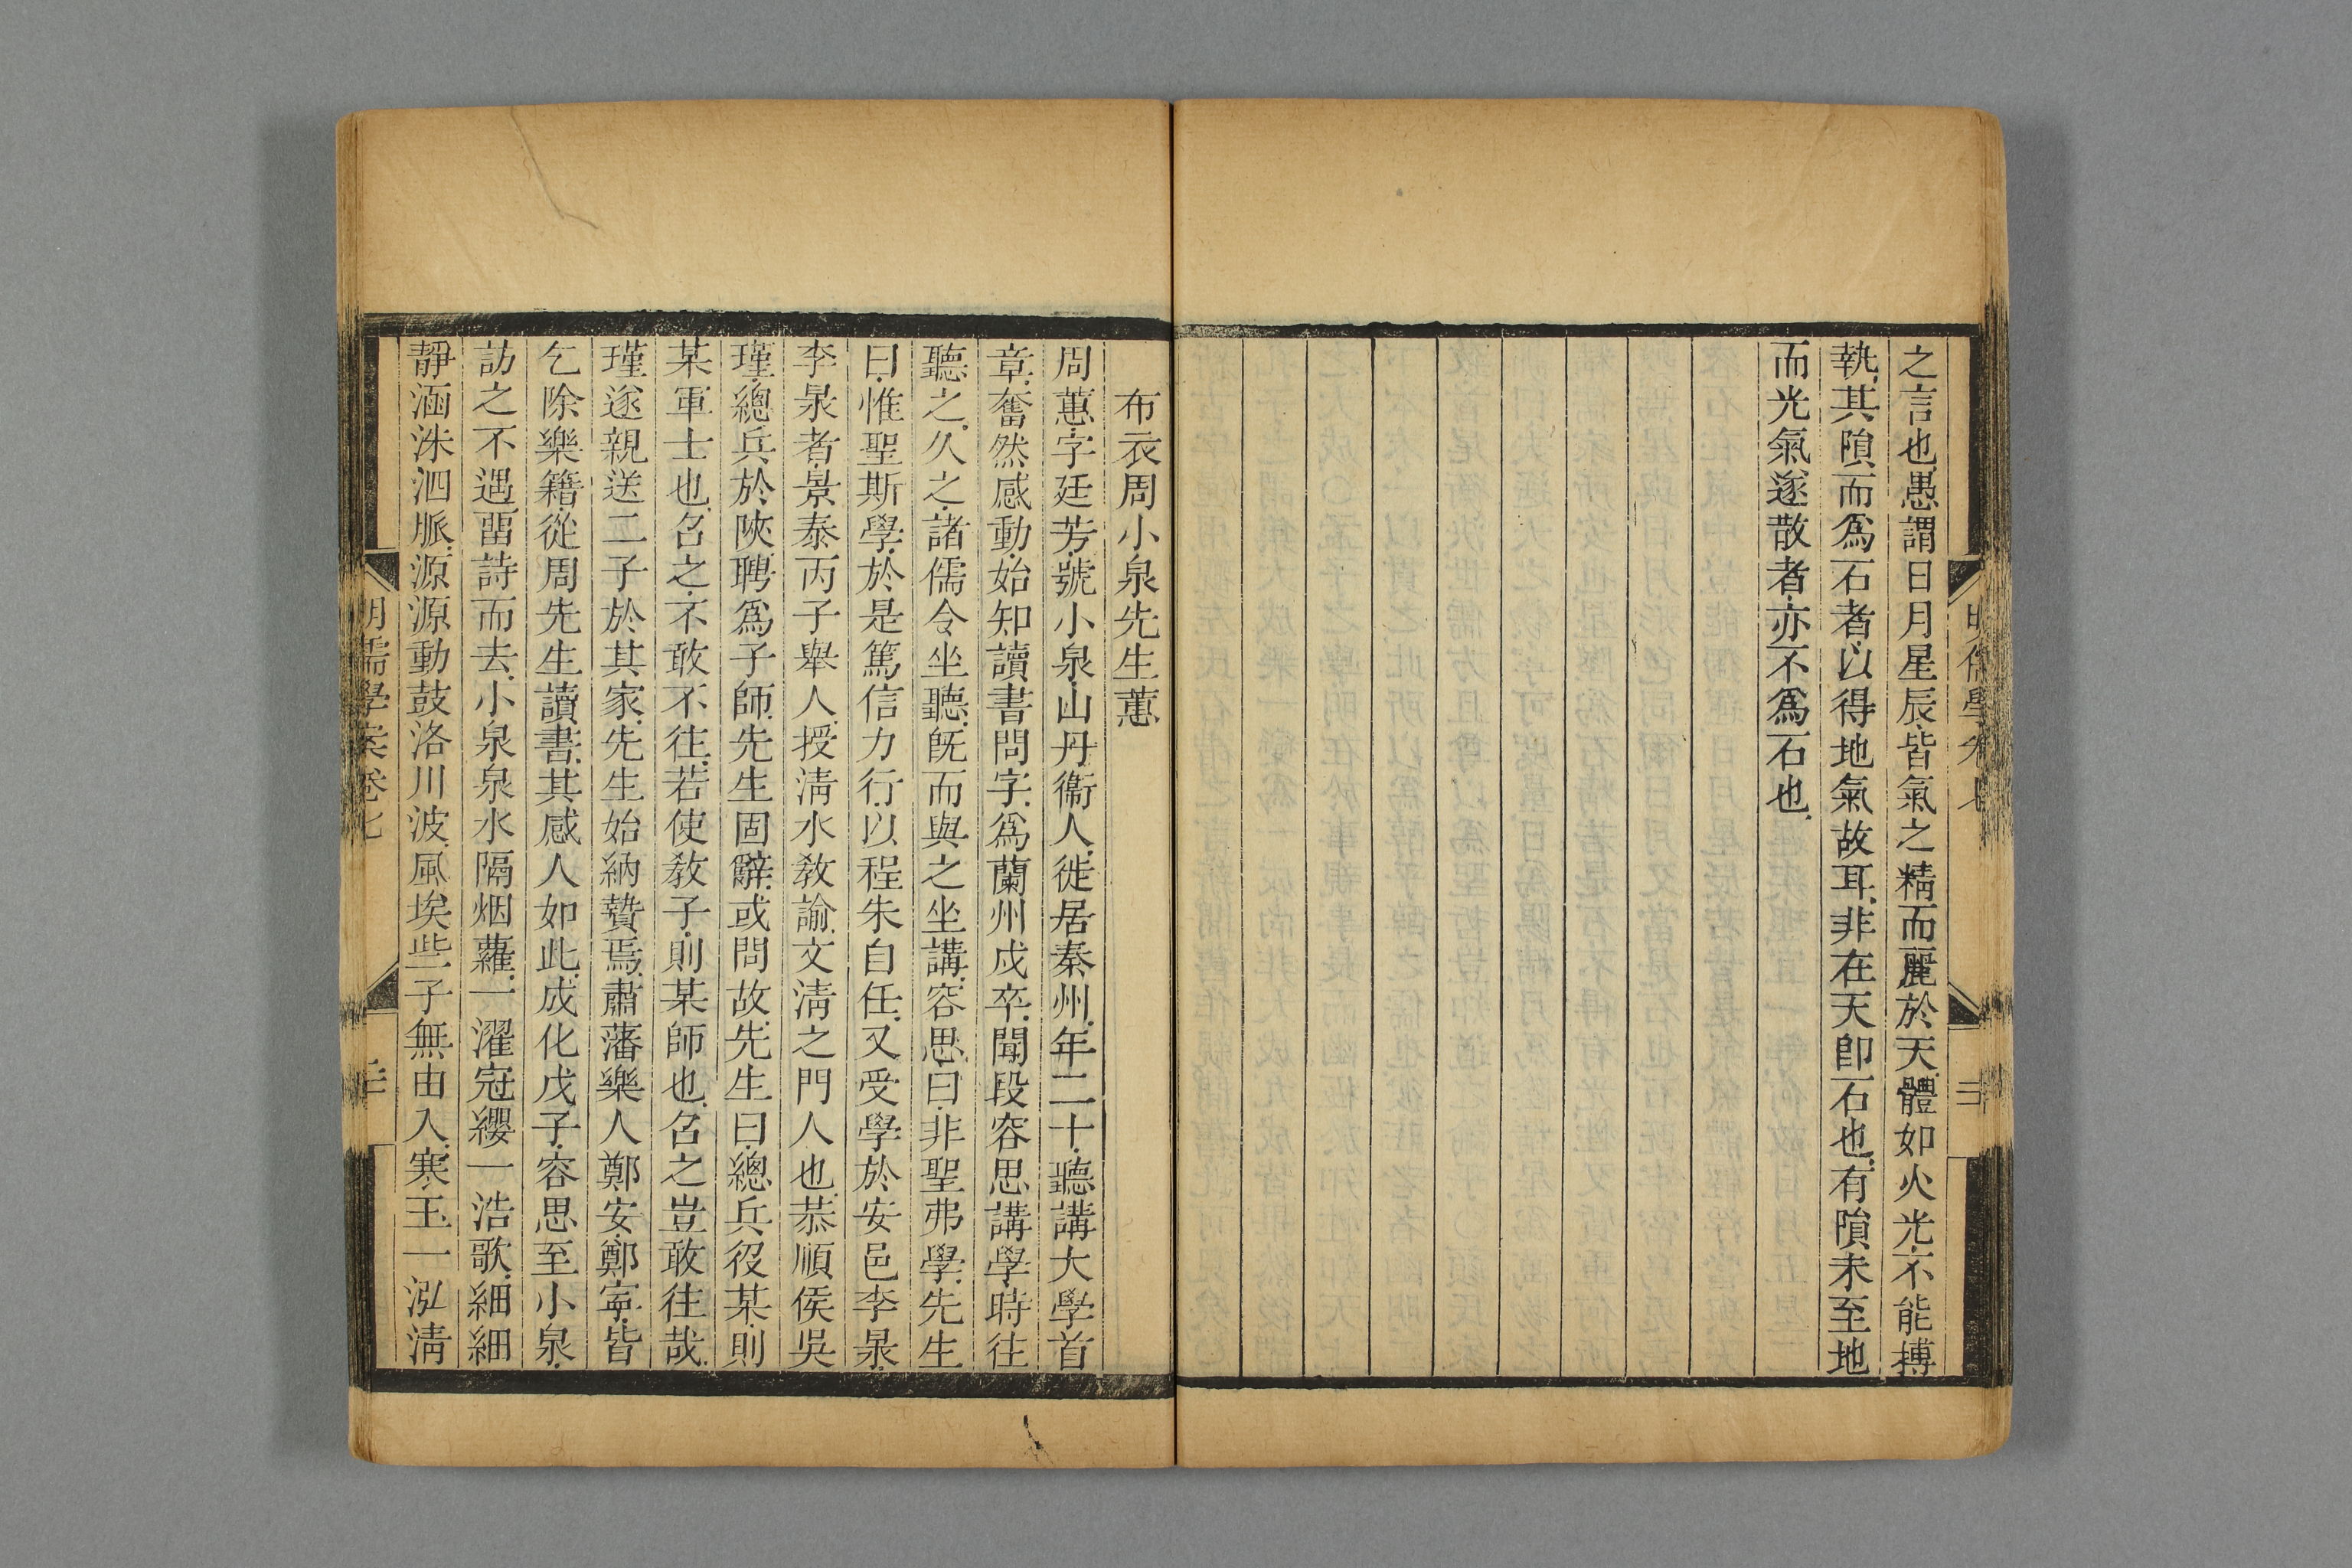 之言也愚謂日月星辰皆氣之精而麗於天體如火光不能搏
執其隕而爲石者以得地氣故耳非在天卽石也有隕未至地
而光氣遂散者亦不爲石也
布衣周小泉先生蕙
周蕙字廷芳號小泉山丹衞人徙居秦州年二十聽講大學首
章奮然感動始知讀書問字爲蘭州戍卒聞段容思講學時往
聽之久之諸儒令坐聽旣而與之坐講容思曰非聖弗學先生
曰惟聖斯學於是篤信力行以程朱自任又受學於安邑李㫤
李㫤者景泰丙子舉人授淸水敎諭文淸之門人也恭順侯吳
瑾總兵於陝聘爲子師先生固辭或問故先生曰總兵役某則
某軍士也召之不敢不往若使敎子則某師也召之豈敢往哉
瑾遂親送二子於其家先生始納贄焉肅藩樂人鄭安鄭寧皆
乞除樂籍從周先生讀書其感人如此成化戊子容思至小泉
訪之不遇畱詩而去小泉泉水隔烟蘿一濯冠纓一浩歌細細
靜涵洙泗脈源源動鼓洛川波風埃些子無由入寒玉一泓淸
明儒學案卷七